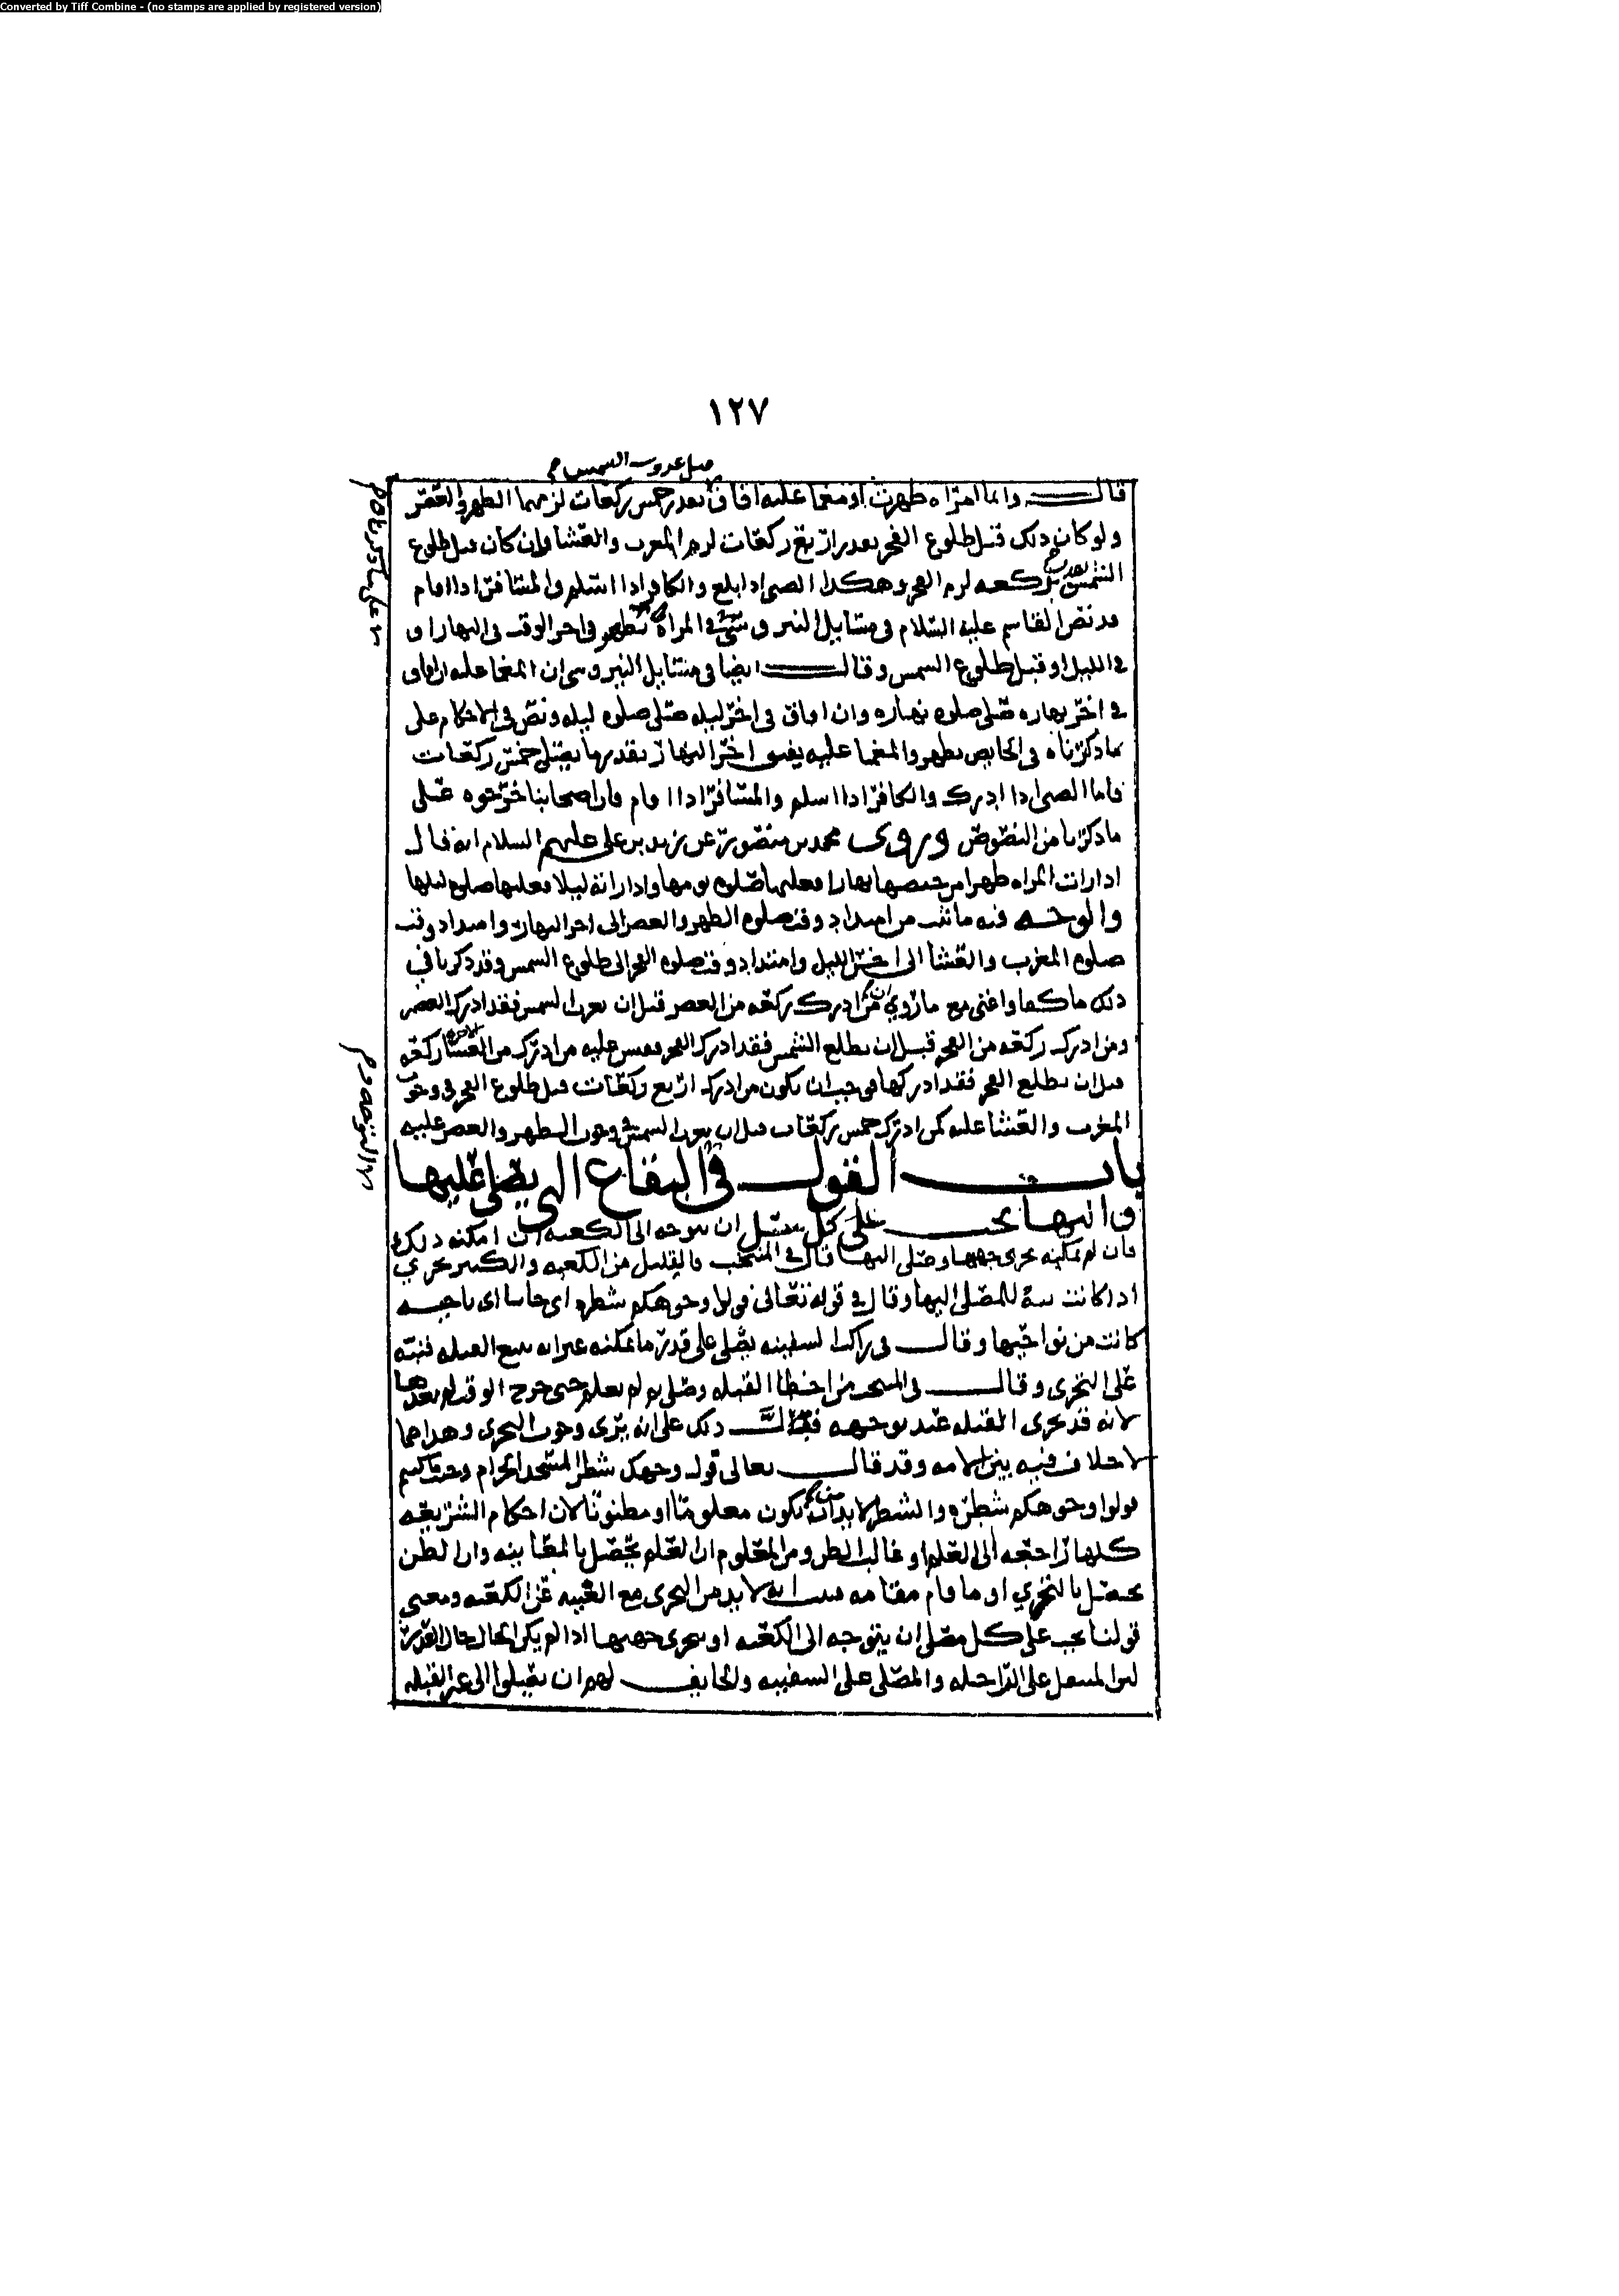 Converted by Tiff Combine - (no stamps are applied by registered version)
١٢٧
قبل غروب الشمس
قال وايما امراه طهرت او مغما عليه افاق بقدر خمس ركعات لزمهما الظهر والعصر
ولو كان ذلك قبل طلوع الفجر بقدر اربع ركعات لزم المغرب والعشا وان كان قبل طلوع
الشمس بقدر ركعه لزم الفجر وهكذا الصبي اذا بلغ والكافر اذا اسلم والمسافر اذا اقام
قد نص القاسم عليه السلام في مسايل النيروسي في المراه تطهر في اخر الوقت في النهار او
في الليل او قبل طلوع الشمس وقال ايضا في مسايل النيروسي ان المغما عليه ان افاق
في اخر نهاره صلى صلوه نهاره وان افاق في اخر ليله صلى صلوه ليله ونص في الاحكام على
ما ذكرناه في الحايض تطهر والمغما عليه يفيق اخر النهار بقدر ما يصلي خمس ركعات
فاما الصبي اذا ادرك والكافر اذا اسلم والمسافر اذا اقام فان اصحابنا خرجوه على
ما ذكرنا من النصوص وروى محمد بن منصور عن زيد بن علي عليهم السلام انه قال
اذا رات المراه طهرا من حيضها نهارا فعليها صلوه يومها واذا راته ليلا فعليها صلوه ليلها
والوجه فيه ما ثبت من امتداد وقت صلوه الظهر والعصر الى اخر النهار وامتداد وقت
صلوه المغرب والعشا الى اخر الليل وامتداد وقت صلوه الفجر الى طلوع الشمس وقد ذكرنا في
ذلك ما كفا واغنى مع ما روي ان من ادرك ركعه من العصر قبل ان تغرب الشمس فقد ادرك العصر
ومن ادرك ركعه من الفجر قبل ان تطلع الشمس فقد ادرك الفجر وقيس عليه من ادرك من العشا الاخره ركعه
قبل ان يطلع الفجر فقد ادركها فوجب ان يكون من ادرك اربع ركعات قبل طلوع الفجر في وجوب
المغرب والعشا عليه كمن ادرك خمس ركعات قبل ان تغرب الشمس في وجوب الظهر والعصر عليه
باب القول في البقاع التي يصلى عليها
واليها يجب على كل مصل ان يتوجه الى الكعبه ان امكنه ذلك
فان لم يمكنه تحرى جهتها وصلى اليها قال في المنتخب والقليل من الكعبه والكثير يجزي
اذا كانت للمصلي اليها وقال في قوله تعالى فولوا وجوهكم شطره اي جانبا اي ناحيه
كانت من نواحيها وقال في راكب السفينه يصلي على قدر ما يمكنه غير انه يتبع القبله فنبه
على التحري وقال في المنتخب من اخطا القبله وصلى ثم لم يعلم حتى خرج الوقت لم يعدها
لانه قد تحرى القبله عند توجهه فدل ذلك على انه يرى وجوب التحري وهذا مما
لا خلاف فيه بين الامه وقد قال تعالى فول وجهك شطر المسجد الحرام وحيث ما كنتم
فولوا وجوهكم شطره والشطر لا بد من ان يكون معلوما او مظنونا لان احكام الشريعه
كلها راجعه الى العلم او غالب الظن ومن المعلوم ان العلم يحصل بالمعاينه وان الظن
يحصل بالتحري او ما قام مقامه فثبت انه لا بد من التحري مع الغيبه عن الكعبه ومعنى
قولنا يجب على كل مصل ان يتوجه الى الكعبه او يتحرى جهتها اذا لم يكن الحال حال العذر
لان المتنفل على الراحله والمصلي على السفينه والخايف لهم ان يصلوا الى غير القبله